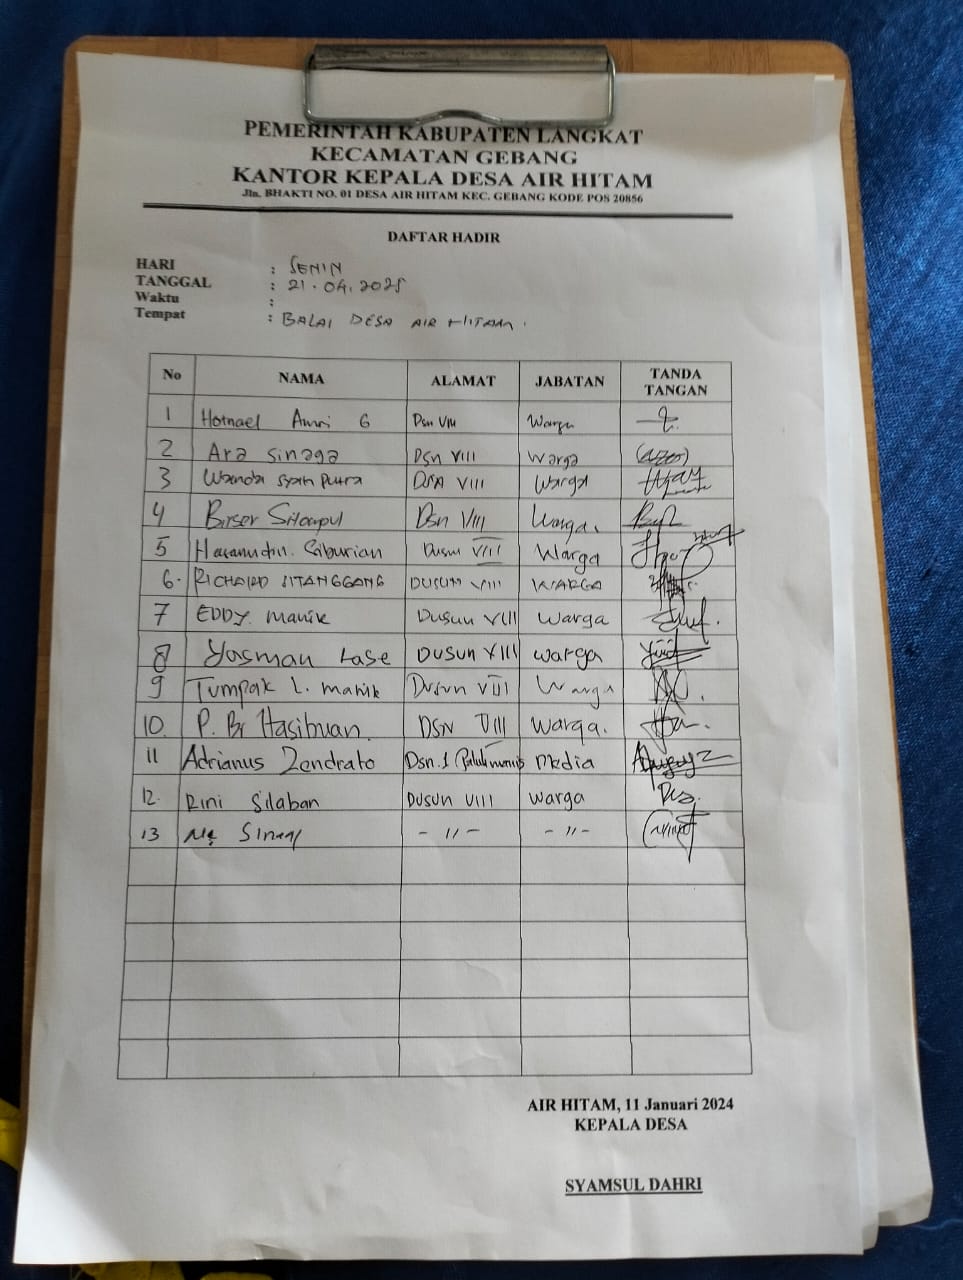 PEMERINTAH KABUPATEN LANGKAT
KECAMATAN GEBANG
KANTOR KEPALA DESA AIR HITAM
Jln. BHAKTI NO. 01 DESA AIR HITAM KEC. GEBANG KODE POS 20856
DAFTAR HADIR
HARI : SENIN
TANGGAL : 21.04.2025
Waktu :
Tempat : BALAI DESA AIR HITAM.
No NAMA ALAMAT JABATAN TANDA TANGAN
1 Dsn VIII Warga
2 Ara Sinaga Dsn VIII Warga
3 Wanda Syah Putra Dsn VIII Warga
4 Birser Dsn VIII Warga.
5 Hasanudin. Siburian Dusun VIII Warga
6. RICHARD SITANGGANG DUSUN VIII WARGA
7 EDDY. Manik Dusun VIII Warga
8 Yasman Lase DUSUN VIII warga
9 Tumpak L. manik Dusun VIII Warga
10. P. Br Hasibuan. DSN VIII Warga.
11 Adrianus Zendrato Dsn.1 media
12. Rini Silaban DUSUN VIII Warga
13 - 〃 - - 〃 -
AIR HITAM, 11 Januari 2024
KEPALA DESA
SYAMSUL DAHRI